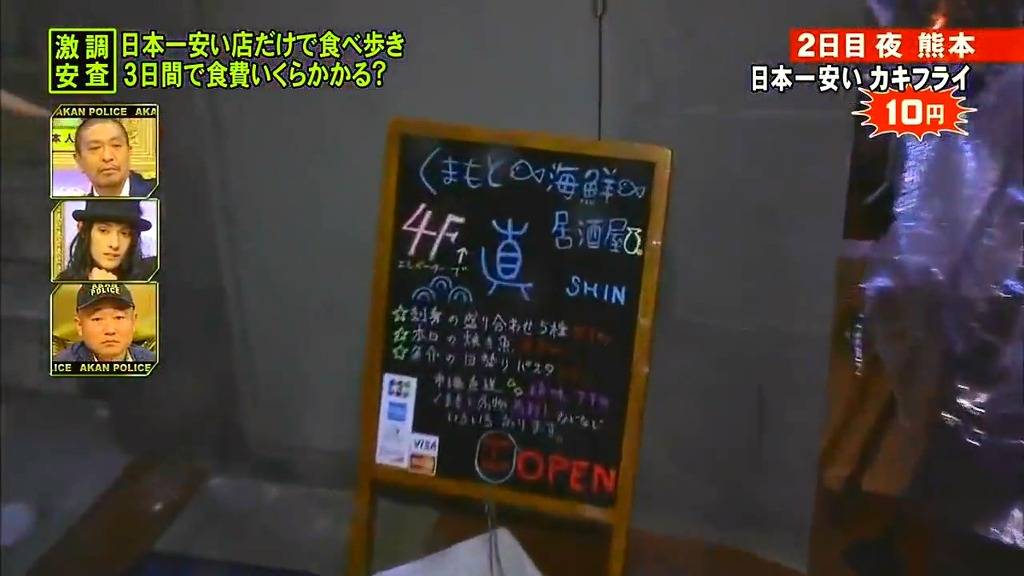 激調
安査
日本一安い店だけで食べ歩き
3日間で食費いくらかかる?
2日目 夜 熊本
日本一安い カキフライ
10円
AKAN POLICE AKA
本人
くまもと 海鮮
居酒屋
4F
エレベーターで
真
SHIN
☆刺身の盛り合わせ5種
☆本日の焼き魚
☆魚介の日替りパスタ
市場直送
いろいろあります。
JCB
VISA
OPEN
ICE AKAN POLICE